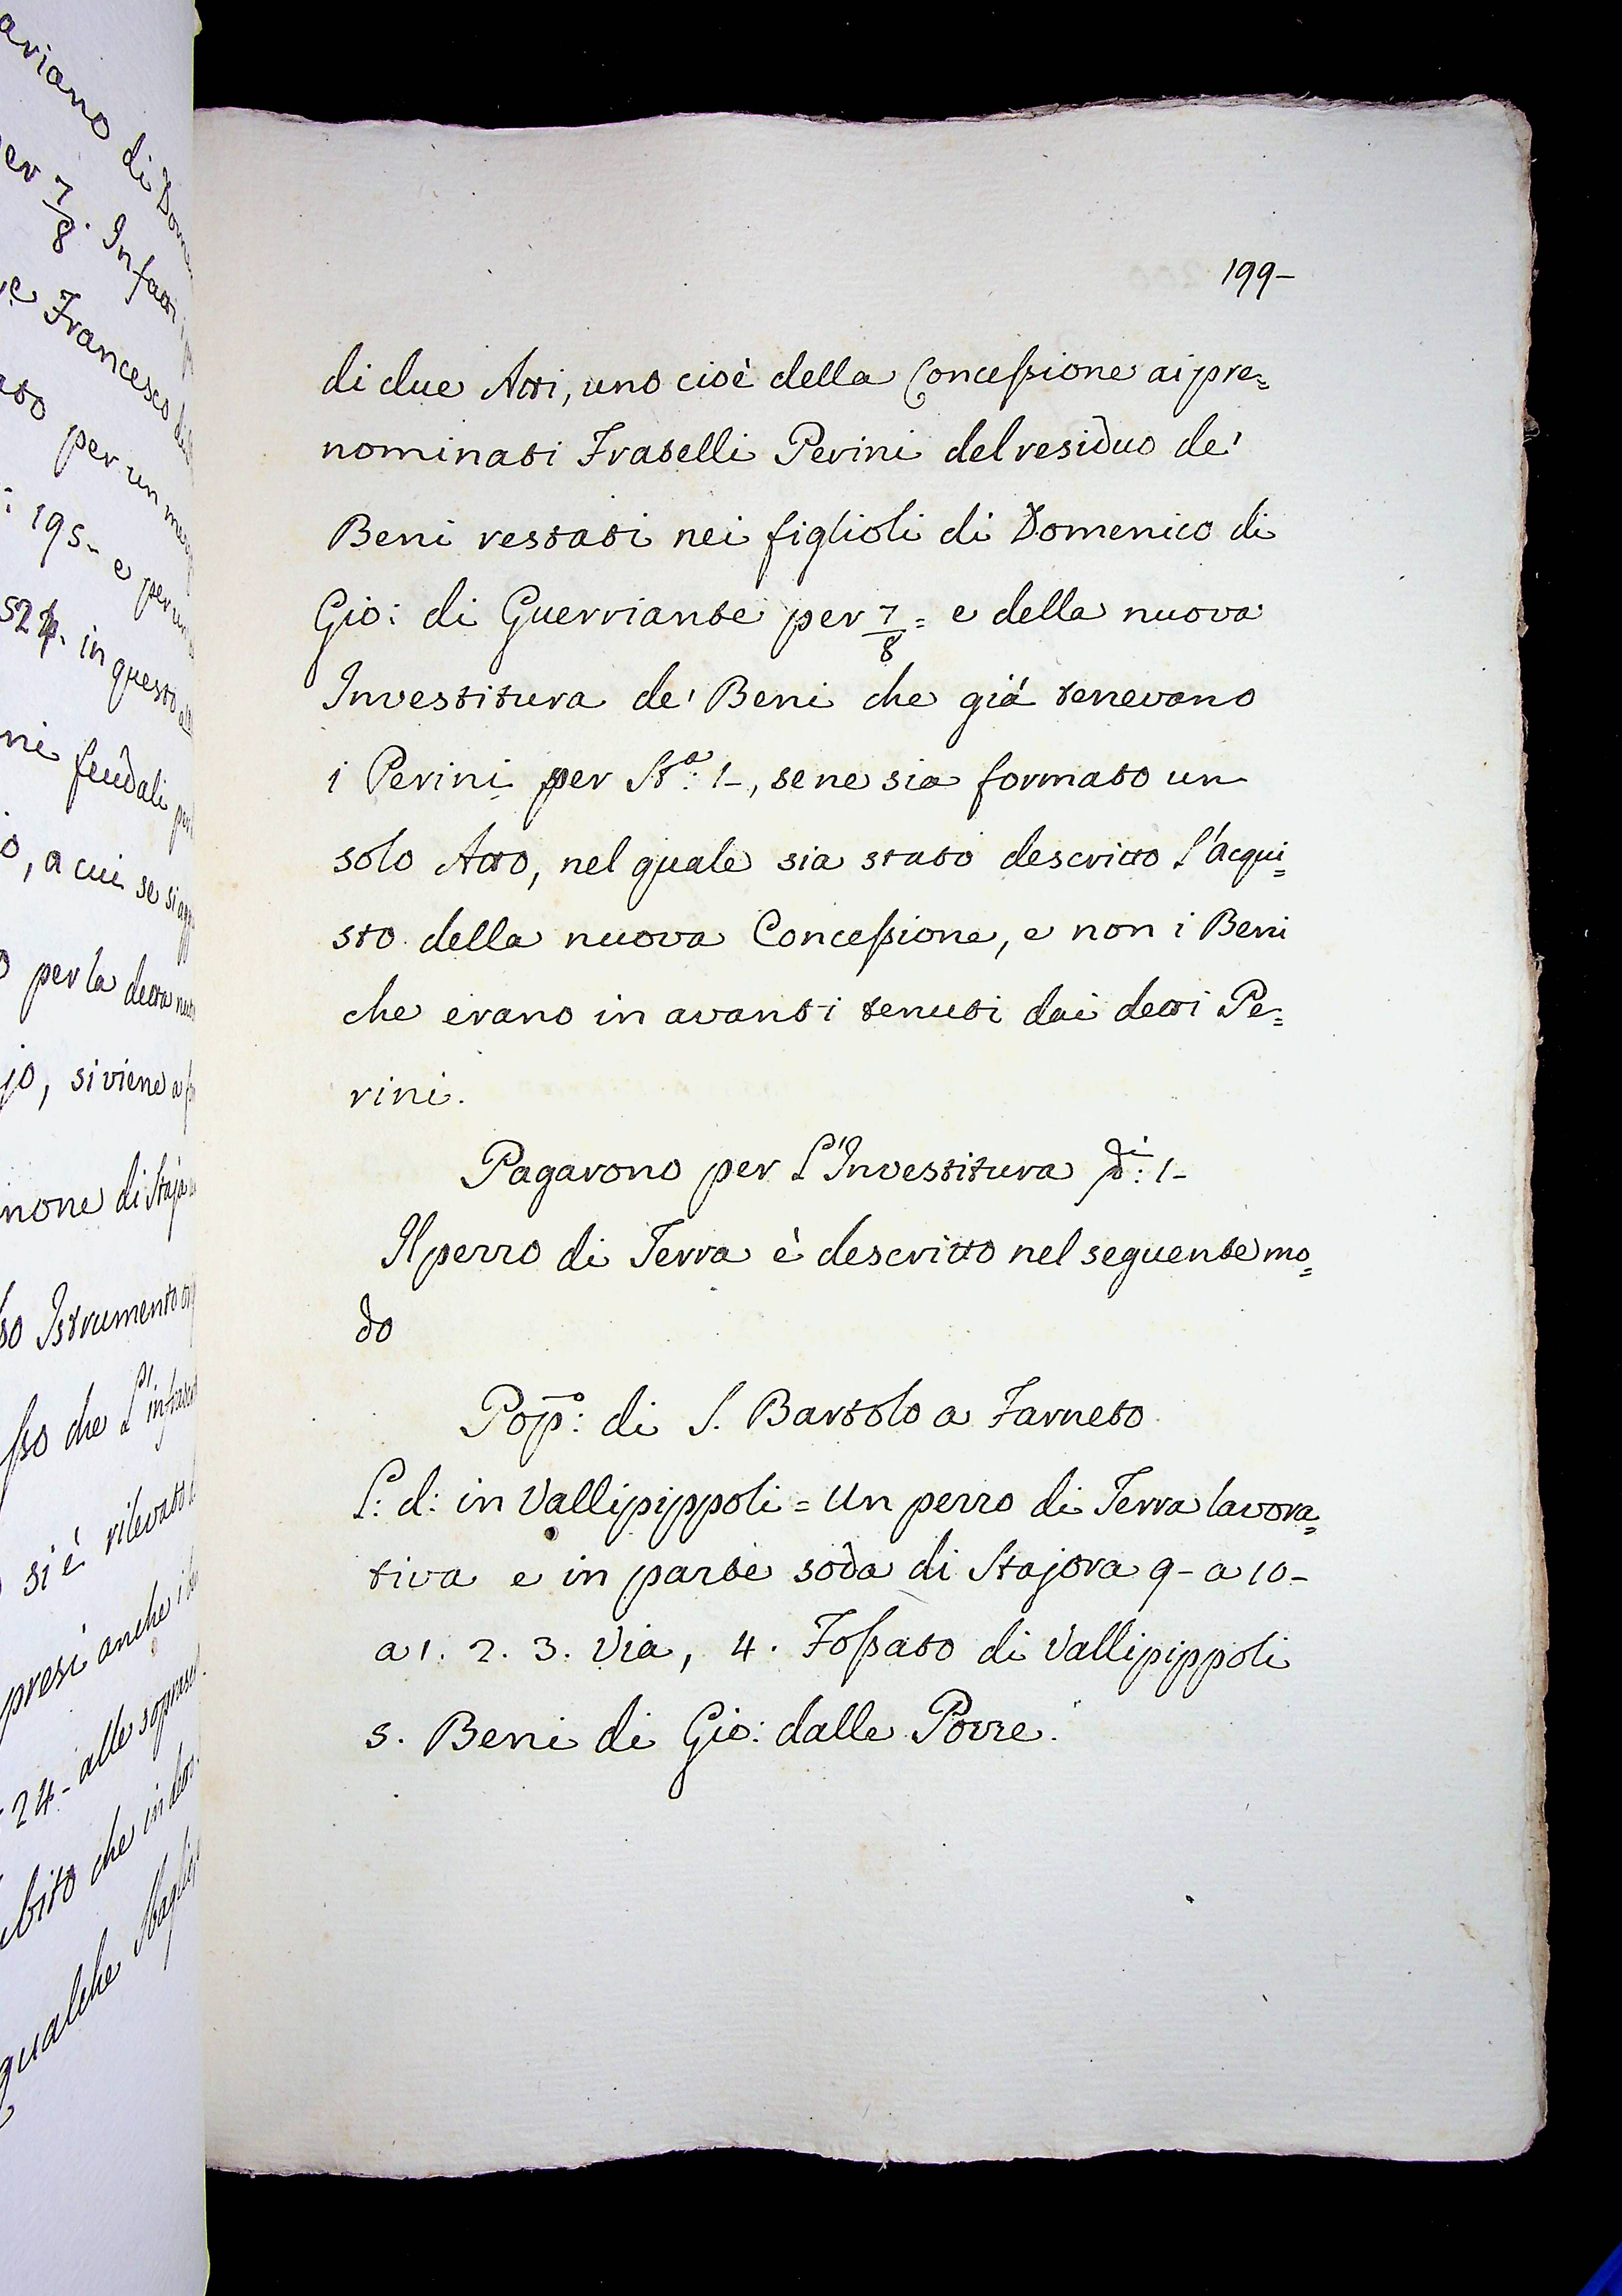 199-
di due Atti, uno cioè della Concessione ai pre=
nominati Fratelli Perini del residuo de'
Beni restati nei figlioli di Domenico di
Gio: di Guerriante per 7/8 = e della nuova
Investitura de' Beni che già tenevano
i Perini per Stª: 1-, se ne sia formato un
solo Atto, nel quale sia stato descritto l'acqui=
sto della nuova Concessione, e non i Beni
che erano in avanti tenuti dai detti Pe=
rini.
Pagarono per l'Investitura 1-
Il pezzo di Terra è descritto nel seguente mo=
do
Pop̄º: di S. Bartolo a Farneto
L: d: in Vallipippoli = Un pezzo di Terra lavora=
tiva e in parte soda di Stajora 9- a 10-
a 1. 2. 3. Via, 4. Fossato di Vallipippoli
5. Beni di Gio: dalle Pozze.
di Dom
7/8. Infatti
Francesco
per un
195- e per un
in questo
feudali
o, a cui se si
per la detta
jo, si viene a
di Staja
Istrumento
che l'
si è rilevato
presi anche i
24- alle
che in
qualche